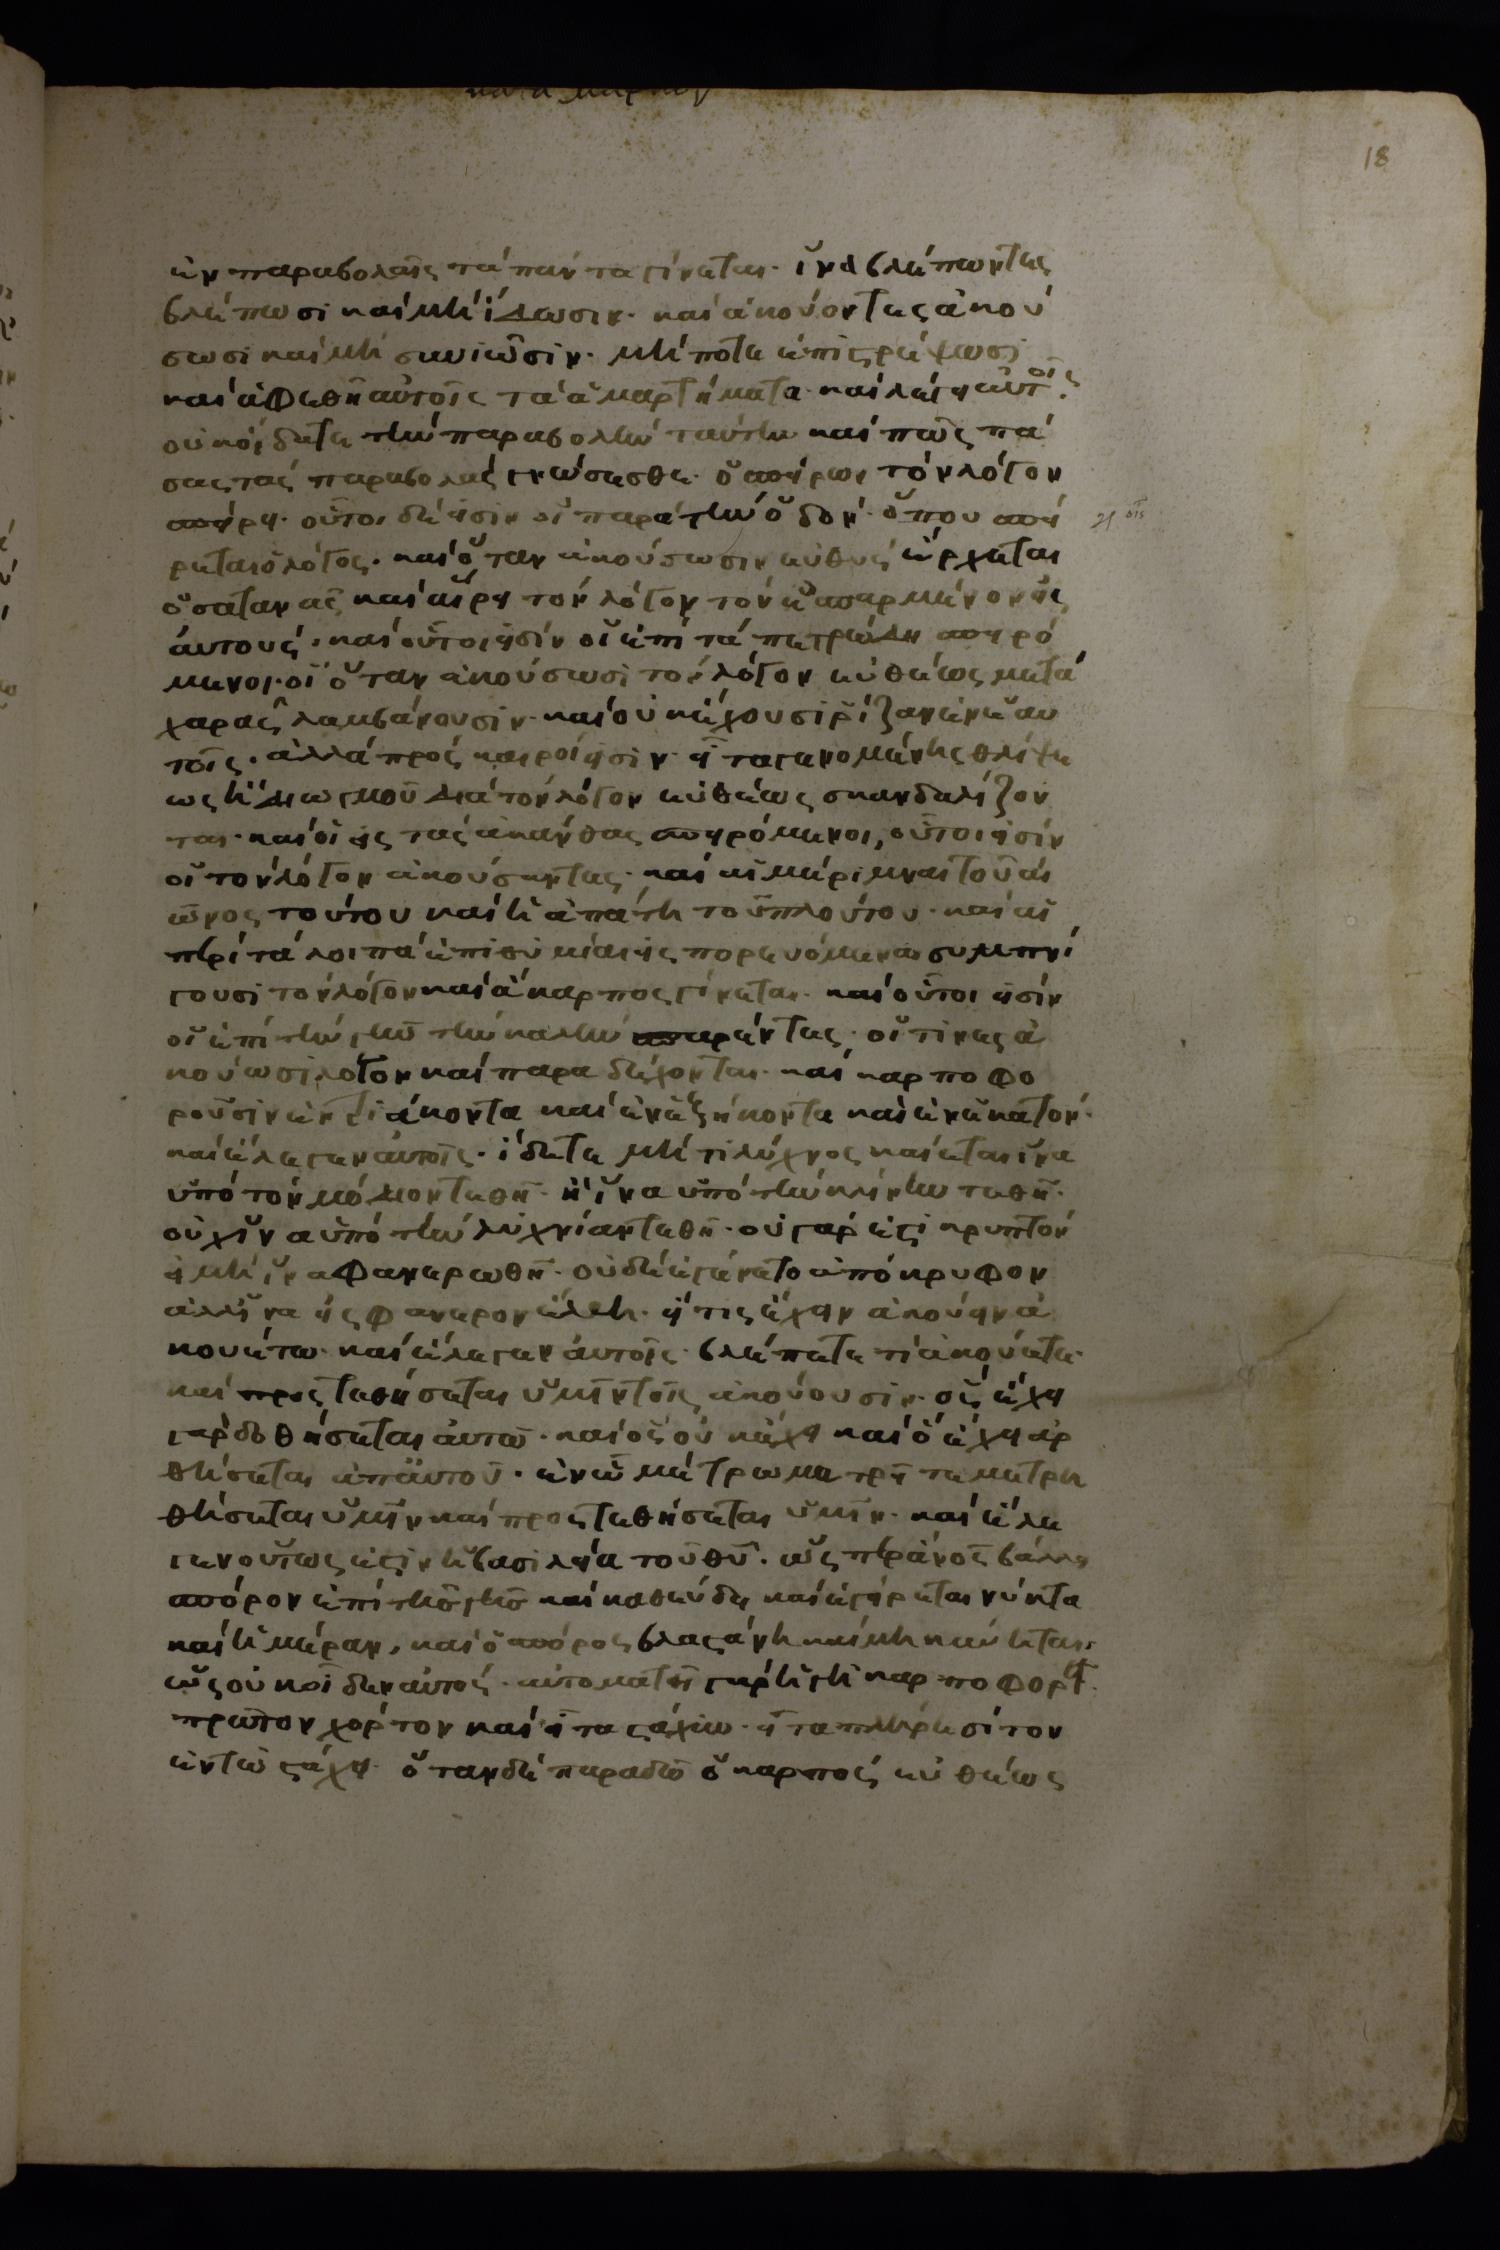 κατα μαρκον
18
ἐν παραβολαῖς τὰ πάντα γίνεται· ἵνα βλέπωντες
βλέπωσι καὶ μὴ ἴδωσιν· καὶ ἀκούοντες ἀκού
σωσι καὶ μὴ συνιῶσιν· μήποτε ἐπιστρέψωσι
καὶ ἀφεθῆ αὐτοῖς τὰ ἁμαρτήματα· καὶ λέγει αὐτοῖς·
οὐκ οἴδατε τὴν παραβολὴν ταύτην καὶ πῶς πά
σας τὰς παραβολὰς γνώσεσθε· ὁ σπείρων τὸν λόγον
σπείρει· οὗτοι δέ εἰσιν οἱ παρὰ τὴν ὁδὸν· ὅπου σπεί
ρεται ὁ λόγος· καὶ ὅταν ἀκούσωσιν εὐθὺς ἔρχεται
ὁ σατανᾶς καὶ αἴρει τὸν λόγον τὸν ἐσπαρμένον εἰς
αὐτούς· καὶ οὗτοι εἰσὶν οἱ ἐπὶ τὰ πετρώδη σπειρό
μενοι· οἳ ὅταν ἀκούσωσι τὸν λόγον εὐθέως μετὰ
χαρᾶς λαμβάνουσιν· καὶ οὐκ ἔχουσι ῥίζαν ἐν ἑαυ
τοῖς· ἀλλὰ πρόσκαιροί εἰσιν· εἶτα γενομένης θλίψε
ως ἢ διωγμοῦ διὰ τὸν λόγον εὐθέως σκανδαλίζον
ται· καὶ οἱ εἰς τὰς ἀκάνθας σπειρόμενοι, οὗτοι εἰσὶν
οἱ τὸν λόγον ἀκούσαντες· καὶ αἱ μέριμναι τοῦ αἰ
ῶνος τούτου καὶ ἡ ἀπάτη τοῦ πλούτου· καὶ αἱ
περὶ τὰ λοιπὰ ἐπιθυμίαι εἰς πορευόμεναι συμπνί
γουσι τὸν λόγον καὶ ἄκαρπος γίνεται· καὶ οὗτοι εἰσὶν
οἱ ἐπὶ τὴν γῆν τὴν καλὴν σπαρέντες· οἵτινες ἀ
κούωσι λόγον καὶ παραδέχονται· καὶ καρποφο
ροῦσιν ἐν τριάκοντα καὶ ἐν ἑξήκοντα καὶ ἐν ἑκατόν·
καὶ ἔλεγεν αὐτοῖς· ἴδετε μήτι λύχνος καίεται ἵνα
ὑπὸ τὸν μόδιον τεθῆ· ἢ ἵνα ὑπὸ τὴν κλίνην τεθῆ·
οὐχ ἵνα ὑπὸ τὴν λυχνίαν τεθῆ· οὐ γάρ ἐστι κρυπτὸν
εἰ μὴ ἵνα φανερωθῆ· οὐδὲ ἐγένετο ἀπόκρυφον
ἀλλ' ἵνα εἰς φανερὸν ἔλθη· εἴ τις ἔχειν ἀκούειν ἀ
κουέτω· καὶ ἔλεγεν αὐτοῖς· βλέπετε τί ἀκούετε·
καὶ προστεθήσεται ὑμῖν τοῖς ἀκούουσιν· ὃς ἔχει
γὰρ δοθήσεται αὐτῶ· καὶ ὃς οὐκ ἔχει καὶ ὃ ἔχει ἀρ
θήσεται ἀπ' αὐτοῦ· ἐν ὧ μέτρω μετρεῖτε μετρη
θήσεται ὑμῖν καὶ προστεθήσεται ὑμῖν· καὶ ἔλε
γεν οὕτως ἐστὶν ἡ βασιλεία τοῦ θῦ· ὡς περ ἄνος βάλλει
σπόρον ἐπὶ τῆς γῆς καὶ καθεύδει καὶ ἐγείρεται νύκτα
καὶ ἡμέραν, καὶ ὁ σπόρος βλαστάνη καὶ μηκύνηται·
ὡς οὐκ οἶδεν αὐτός· αὐτομάτη γὰρ ἡ γῆ καρποφορεῖ·
πρῶτον χόρτον καὶ εἶτα στάχυν· εἶτα πλήρη σῖτον
ἐν τῶ στάχυι· ὅταν δὲ παραδῶ ὁ καρπός εὐθέως